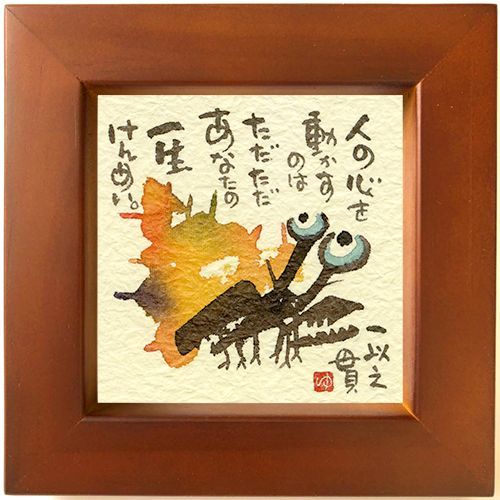 人の心を
動かす
のは
ただただ
あなたの
一生
けんめい。
一以之
貫
ゆ